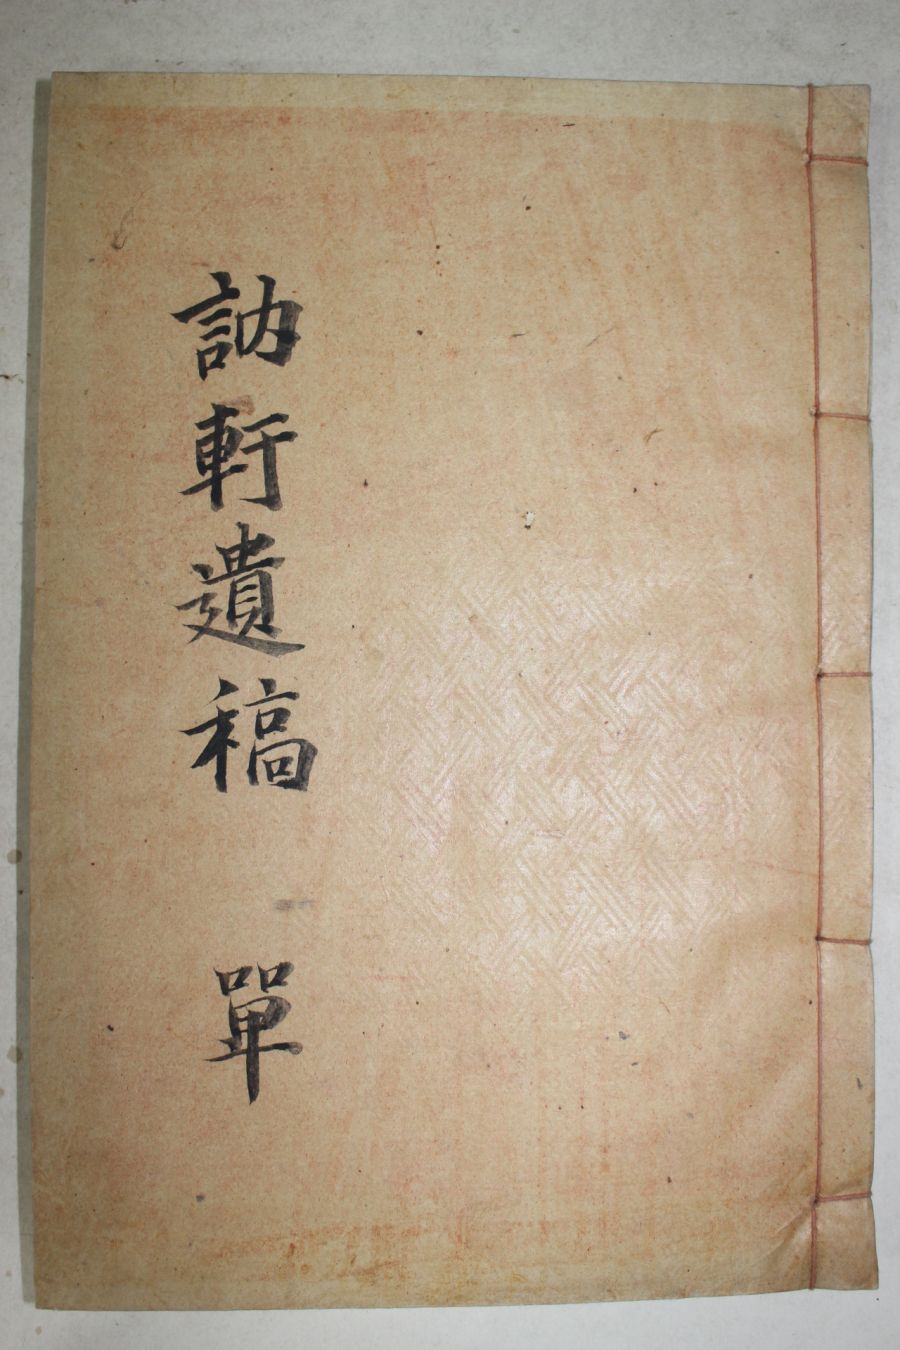 訥軒遺稿 單